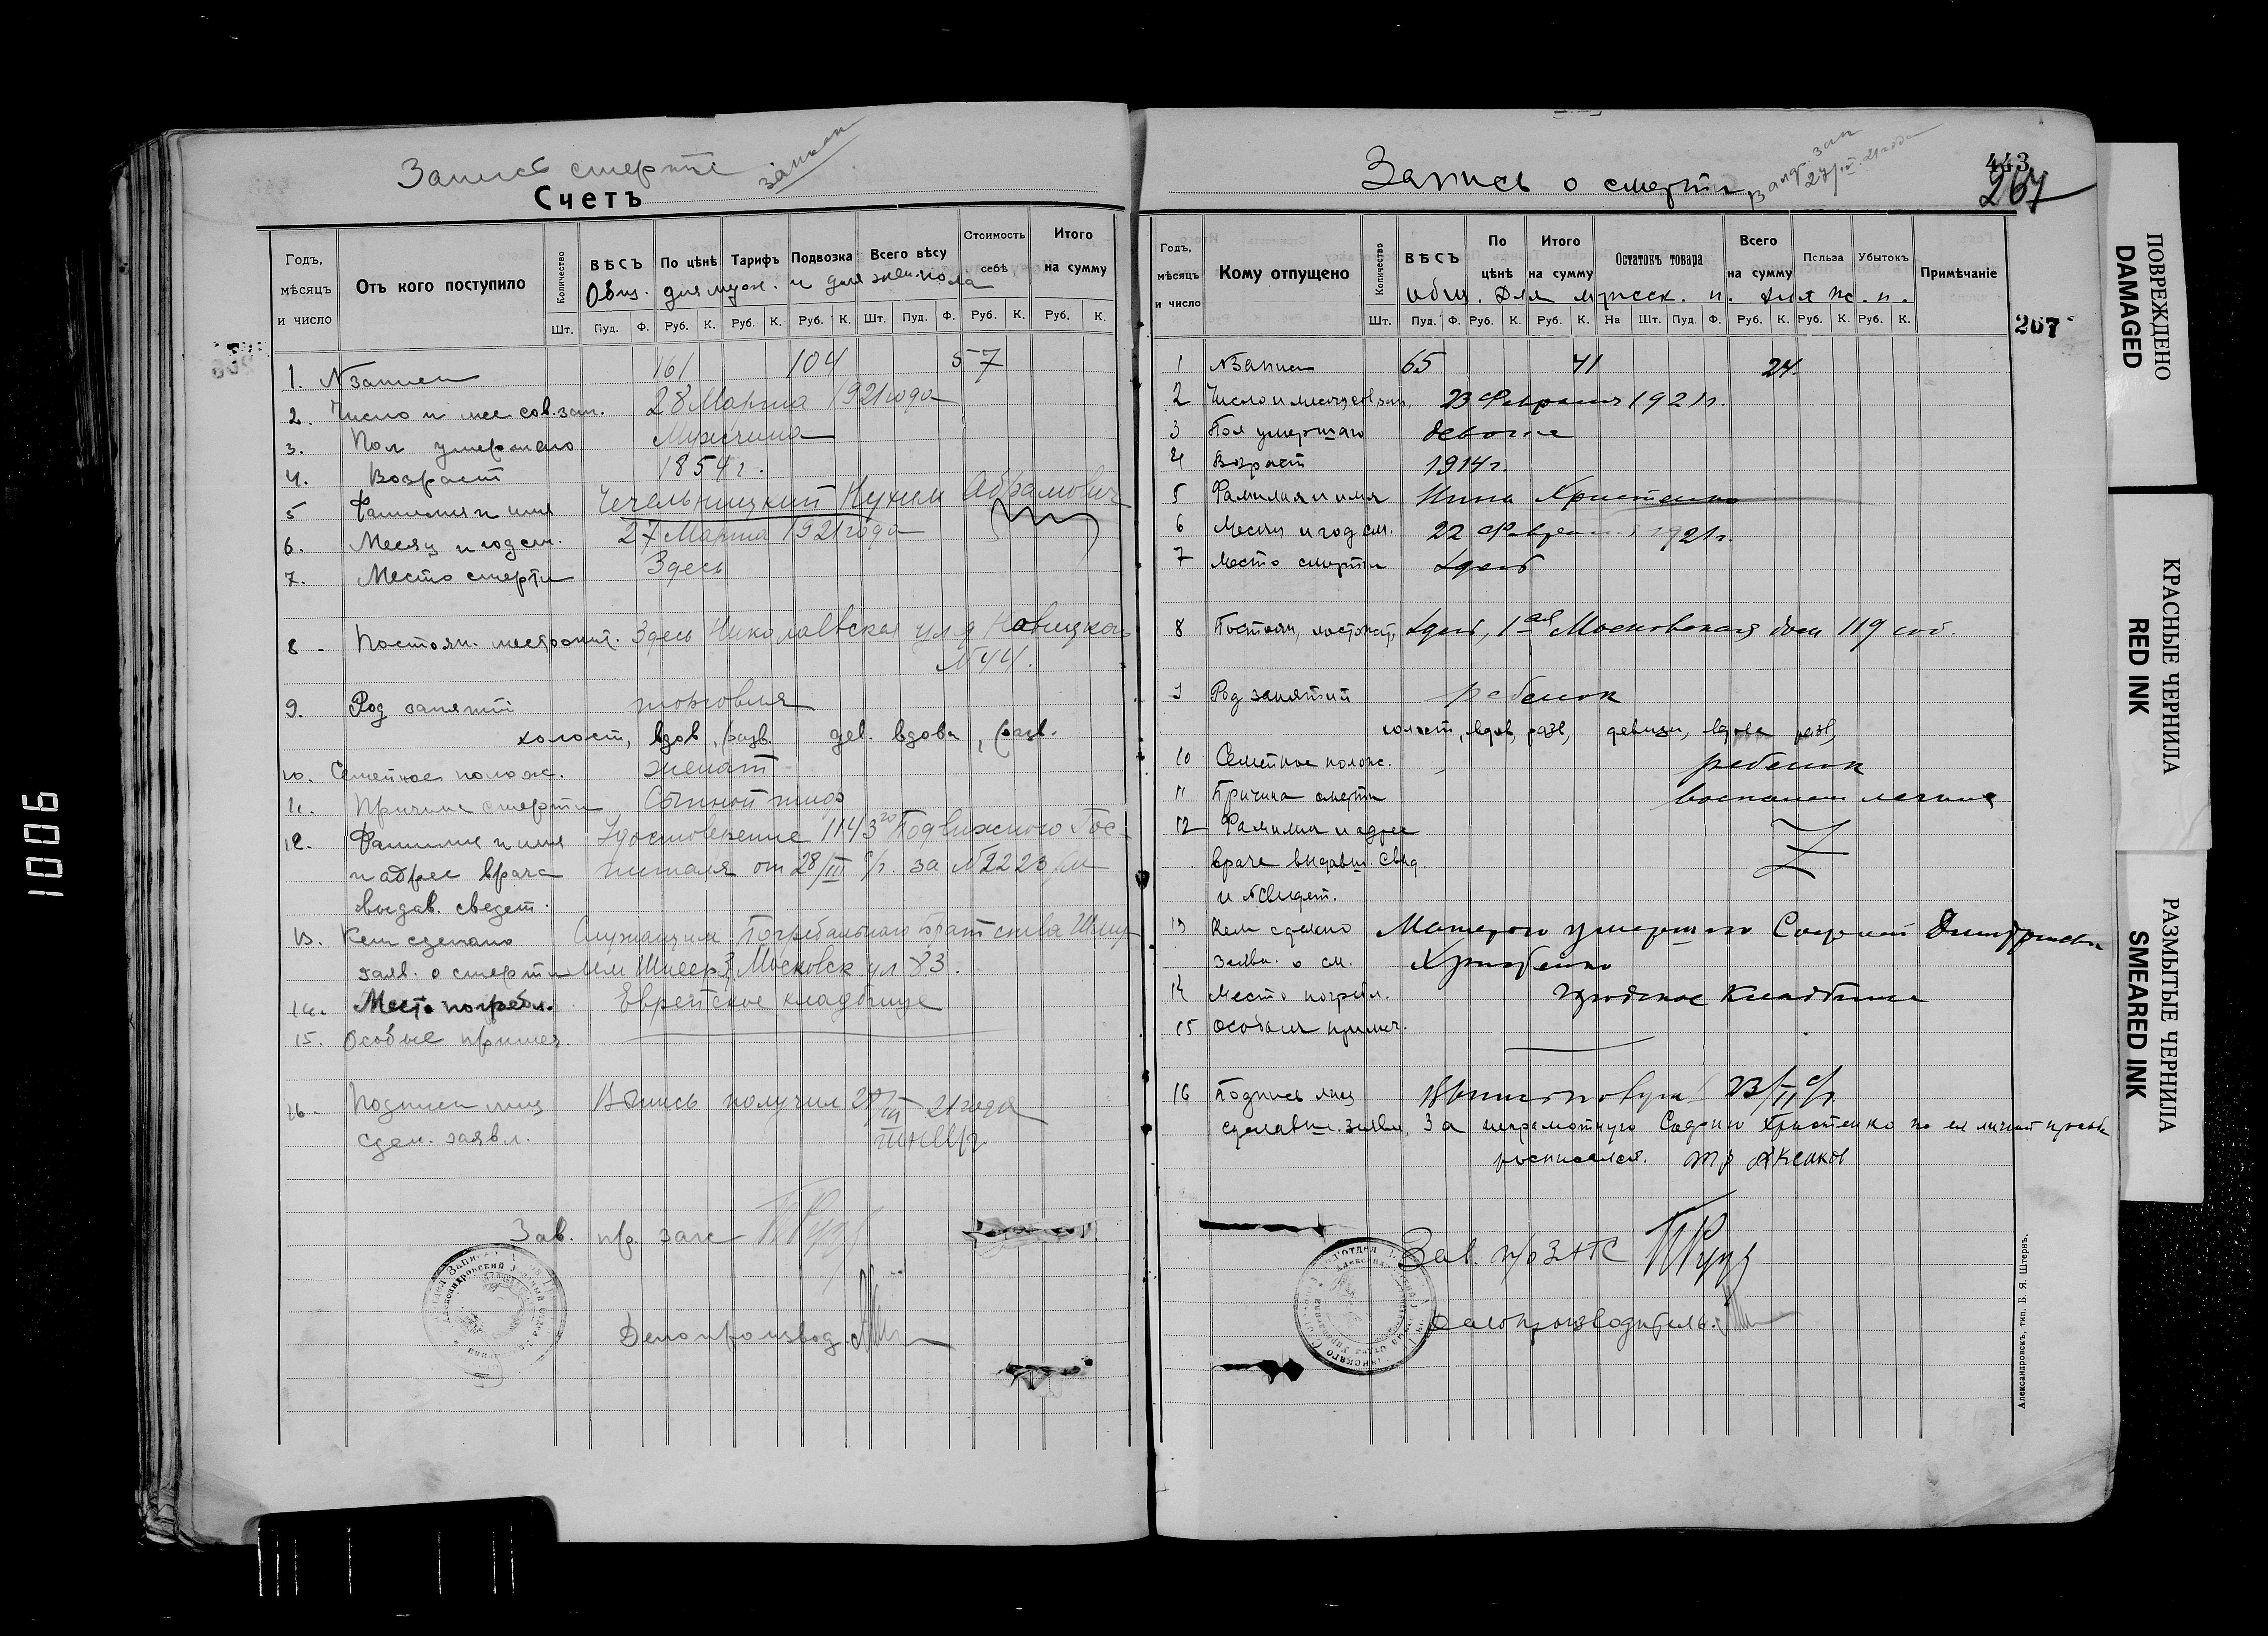 1006
Запись смерти
Счетъ
Годъ, мѣсяцъ и число
Отъ кого поступило
Количество
ВѢСЪ
По цѣнѣ
Тарифъ
Подвозка
Всего вѣсу
Стоимость себѣ
Итого на сумму
Общ. для муж. и для жен. пола
Шт. Пуд. Ф. Руб. К. Руб. К. Руб. К. Шт. Пуд. Ф. Руб. К. Руб. К.
1. N записи 161 104 57
2. Число и мес сов. зап. 28 Марта 1921 года
3. Пол умершаго Мужчина
4. Возраст 1854 г.
5 Фамилия и имя Чечельницкий Нухим Абрамович
6. Месяц и год см. 27 Марта 1921 года
7. Место смерти Здесь
8 - Постоян. местожит. Здесь Николаевская ул д Новицкаго
N 44.
9. Род занятий торговля
холост, вдов, разв. дев. вдова, разв.
10. Семейное полож. женат
11. Причина смерти Сыпной тиф
12. Фамилия и имя Удостоверение 1143го Подвижного Гос-
и адрес врача питаля от 28/III с/г. за N 2223
выдав. сведет.
13. Кем сделано Служащим Погребального Братства Шму-
заяв. о смерти лем Шнеер, Московск ул 83.
14. Место погребен. Еврейское кладбище
15. Особые примеч.
16. Подписи лиц Выпись получил 28/III 21 года
сдел. заявл.
Зав. п/о загс
Делопроизвод.
Запись о смерти
27/III 21 года
443
267
Годъ, мѣсяцъ и число
Кому отпущено
Количество
ВѢСЪ
По цѣнѣ
Итого на сумму
Остатокъ товара
Всего на сумму
Польза
Убытокъ
Примѣчаніе
общ. для мужск. п. для ж. п.
Шт. Пуд. Ф. Руб. К. Руб. К. На Шт. Пуд. Ф. Руб. К. Руб. К. Руб. К.
267
1 N записи 65 41 24.
2 Число и месяц сов. зап. 23 Февраля 1921 г.
3 Пол умершаго
4 Возраст 1914 г.
5 Фамилия и имя Нина Христенко
6 Месяц и год см. 22 Февраля 1921 г.
7 Место смерти здесь
8 Постоян. местожит. здесь, 1ая Московская дом 119 соб.
9 Род занятий ребенок
холост, вдов, разв, девица, вдова разв,
10 Семейное полож. ребенок
11 Причина смерти воспаление легких
12 Фамилия и адрес
врача выдавш. свид.
и N свидет.
13 Кем сделано Матерью умершаго Софией Дмитриевн
заявл. о см. Христенко
14 Место погребл. городское кладбище
15 Особыя примеч.
16 Подпись лиц 23/II с/г
сделавш. заявл. За неграмотную Софию Христенко по ея личной просьбе
росписался. Аксаков
Зав. п/о ЗАГС
Делопроизводитель
Александровскъ, тип. Б. Я. Штернъ.
ПОВРЕЖДЕНО
DAMAGED
КРАСНЫЕ ЧЕРНИЛА
RED INK
РАЗМЫТЫЕ ЧЕРНИЛА
SMEARED INK